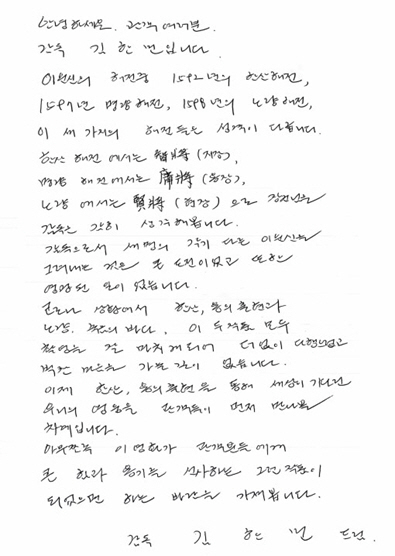 안녕하세요. 관객 여러분.
감독 김한민입니다.
이순신의 해전중 1592년의 한산해전,
1597년 명량해전, 1598년의 노량해전,
이 세 가지의 해전들은 성격이 다릅니다.
한산 해전에서는 智將 (지장),
명량 해전에서는 勇將 (용장),
노량 에서는 賢將 (현장) 으로 김한민
감독은 감히 생각해봅니다.
감독으로서 세명의 각기 다른 이순신을
그려내는 것은 큰 도전이었고 또한
영광된 일이었습니다.
코로나 상황에서 한산, 용의 출현과
노량. 죽음의 바다. 이 두작품 모두
촬영을 잘 마치게되어 더없이 다행이었고
벅찬 마음을 가눌 길이 없습니다.
이제 한산, 용의출현 을 통해 세상이 기다린
우리의 영웅을 관객들이 먼저 만나볼
차례입니다.
아무쪼록 이 영화가 관객분들에게
큰 힘과 용기를 선사하는 그런 작품이
되었으면 하는 바람을 가져봅니다.
감독 김 한 민 드림.